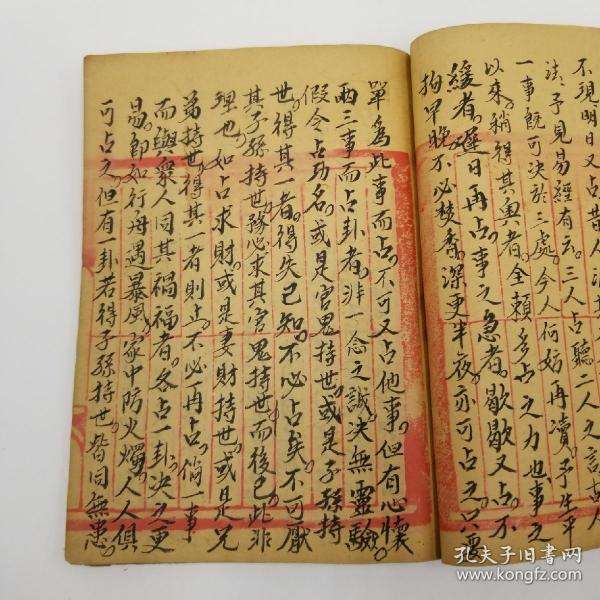 不現明日又占昔
法予見易經有云三人占聽二人之言古人
一事既可決於三處今人何妨再瀆予生平
以來稍得其奧者全賴多占之力也事之
緩者遲日再占事之急者歇歇又占不
拘早晚不必焚香深更半夜亦可占之只要
單為此事而占不可又占他事但有心懷
兩三事而占卦者非一念之誠決無靈驗
假令占功名或是官鬼持世或是子孫持
世得其一者得失已知不必占矣不可厭
其子孫持世務必求其官鬼持世而後已此非
理也如占求財或是妻財持世或是兄
弟持世得其一者則止不必再占倘一事
而與眾人同其禍福者各占一卦決之更
易即如行舟遇暴風家中防火燭人人俱
可占之但有一卦若得子孫持世皆同無患
孔夫子旧书网
www.kongfz.com